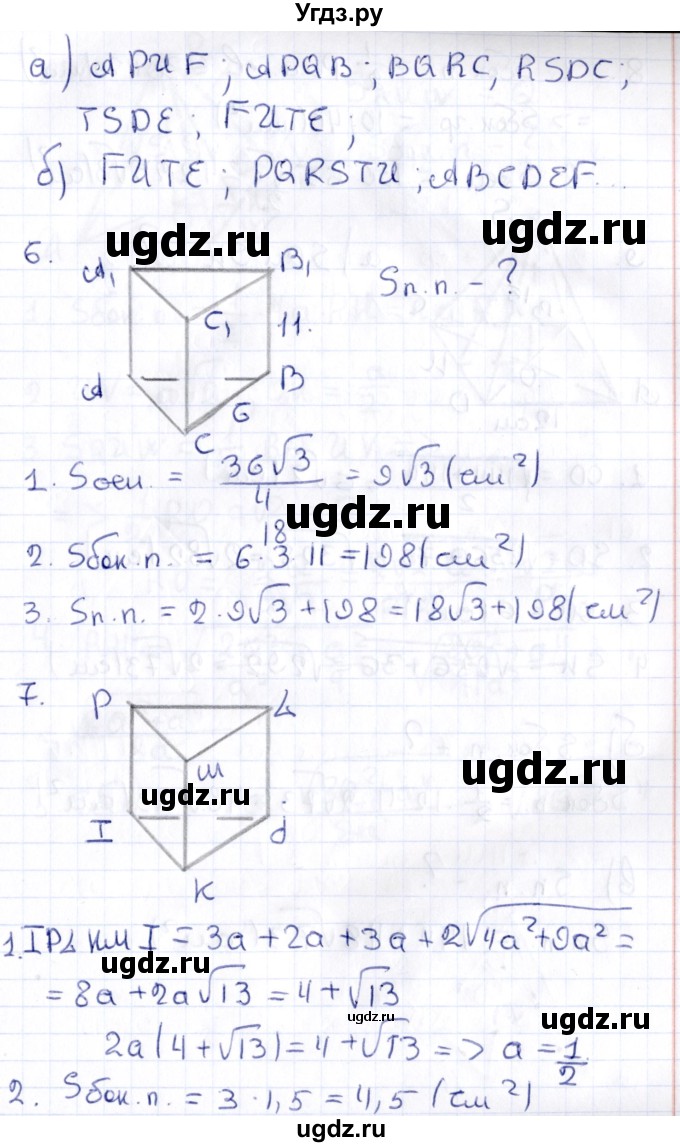 Угдз.ру
а) APUF; APQB; BQRC, RSDC;
TSDE; FUTE;
б) FUTE; PQRSTU; ABCDEF...
ugdz.ru
ugdz.ru
6.
A₁
B₁
Sп.п. - ?
C₁
11.
A
B
6
C
ugdz.ru
1. Sосн. = 36√3/4 = 9√3 (см²)
ugdz.ru
18
2. Sбок.п. = 6·3·11 = 198 (см²)
3. Sп.п. = 2·9√3 + 198 = 18√3 + 198 (см²)
7.
P
L
M
ugdz.ru
ugdz.ru
I
J
K
1. IPLKMI = 3a + 2a + 3a + 2√4a²+9a² =
ugdz.ru
= 8a + 2a√13 = 4 + √13
ugdz.ru
2a(4 + √13) = 4 + √13 => a = 1/2
2. Sбок.п. = 3·1,5 = 4,5 (см²)
ugdz.ru